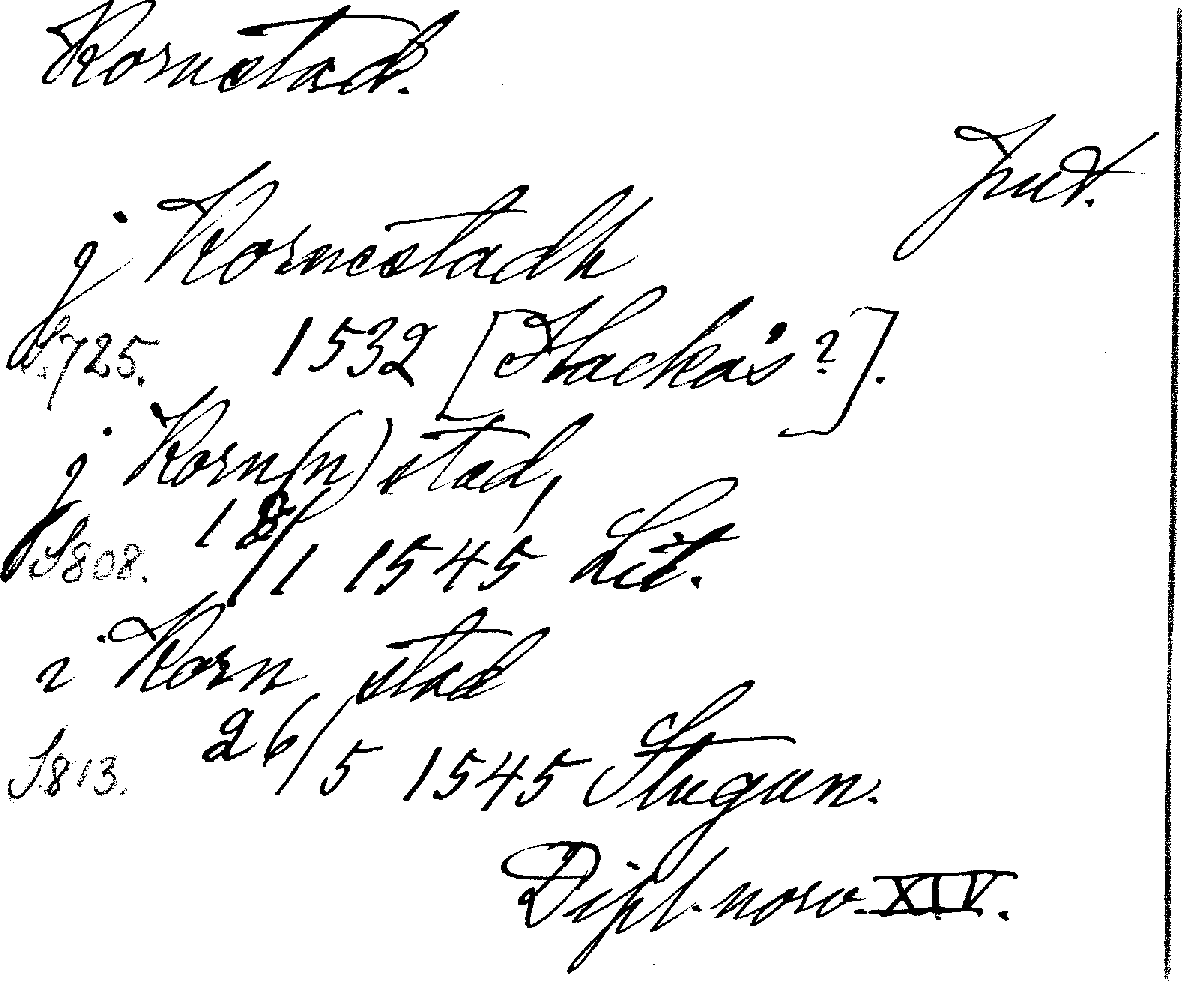 Kornstad.
Jmt.
j Kornestadh
S.725. 1532 [Hackås?].
j Korn(n)stad,
S808. 18/1 1545 Lit.
i Korn stad
S813. 26/5 1545 Stugun.
Dipl. norv. XIV.